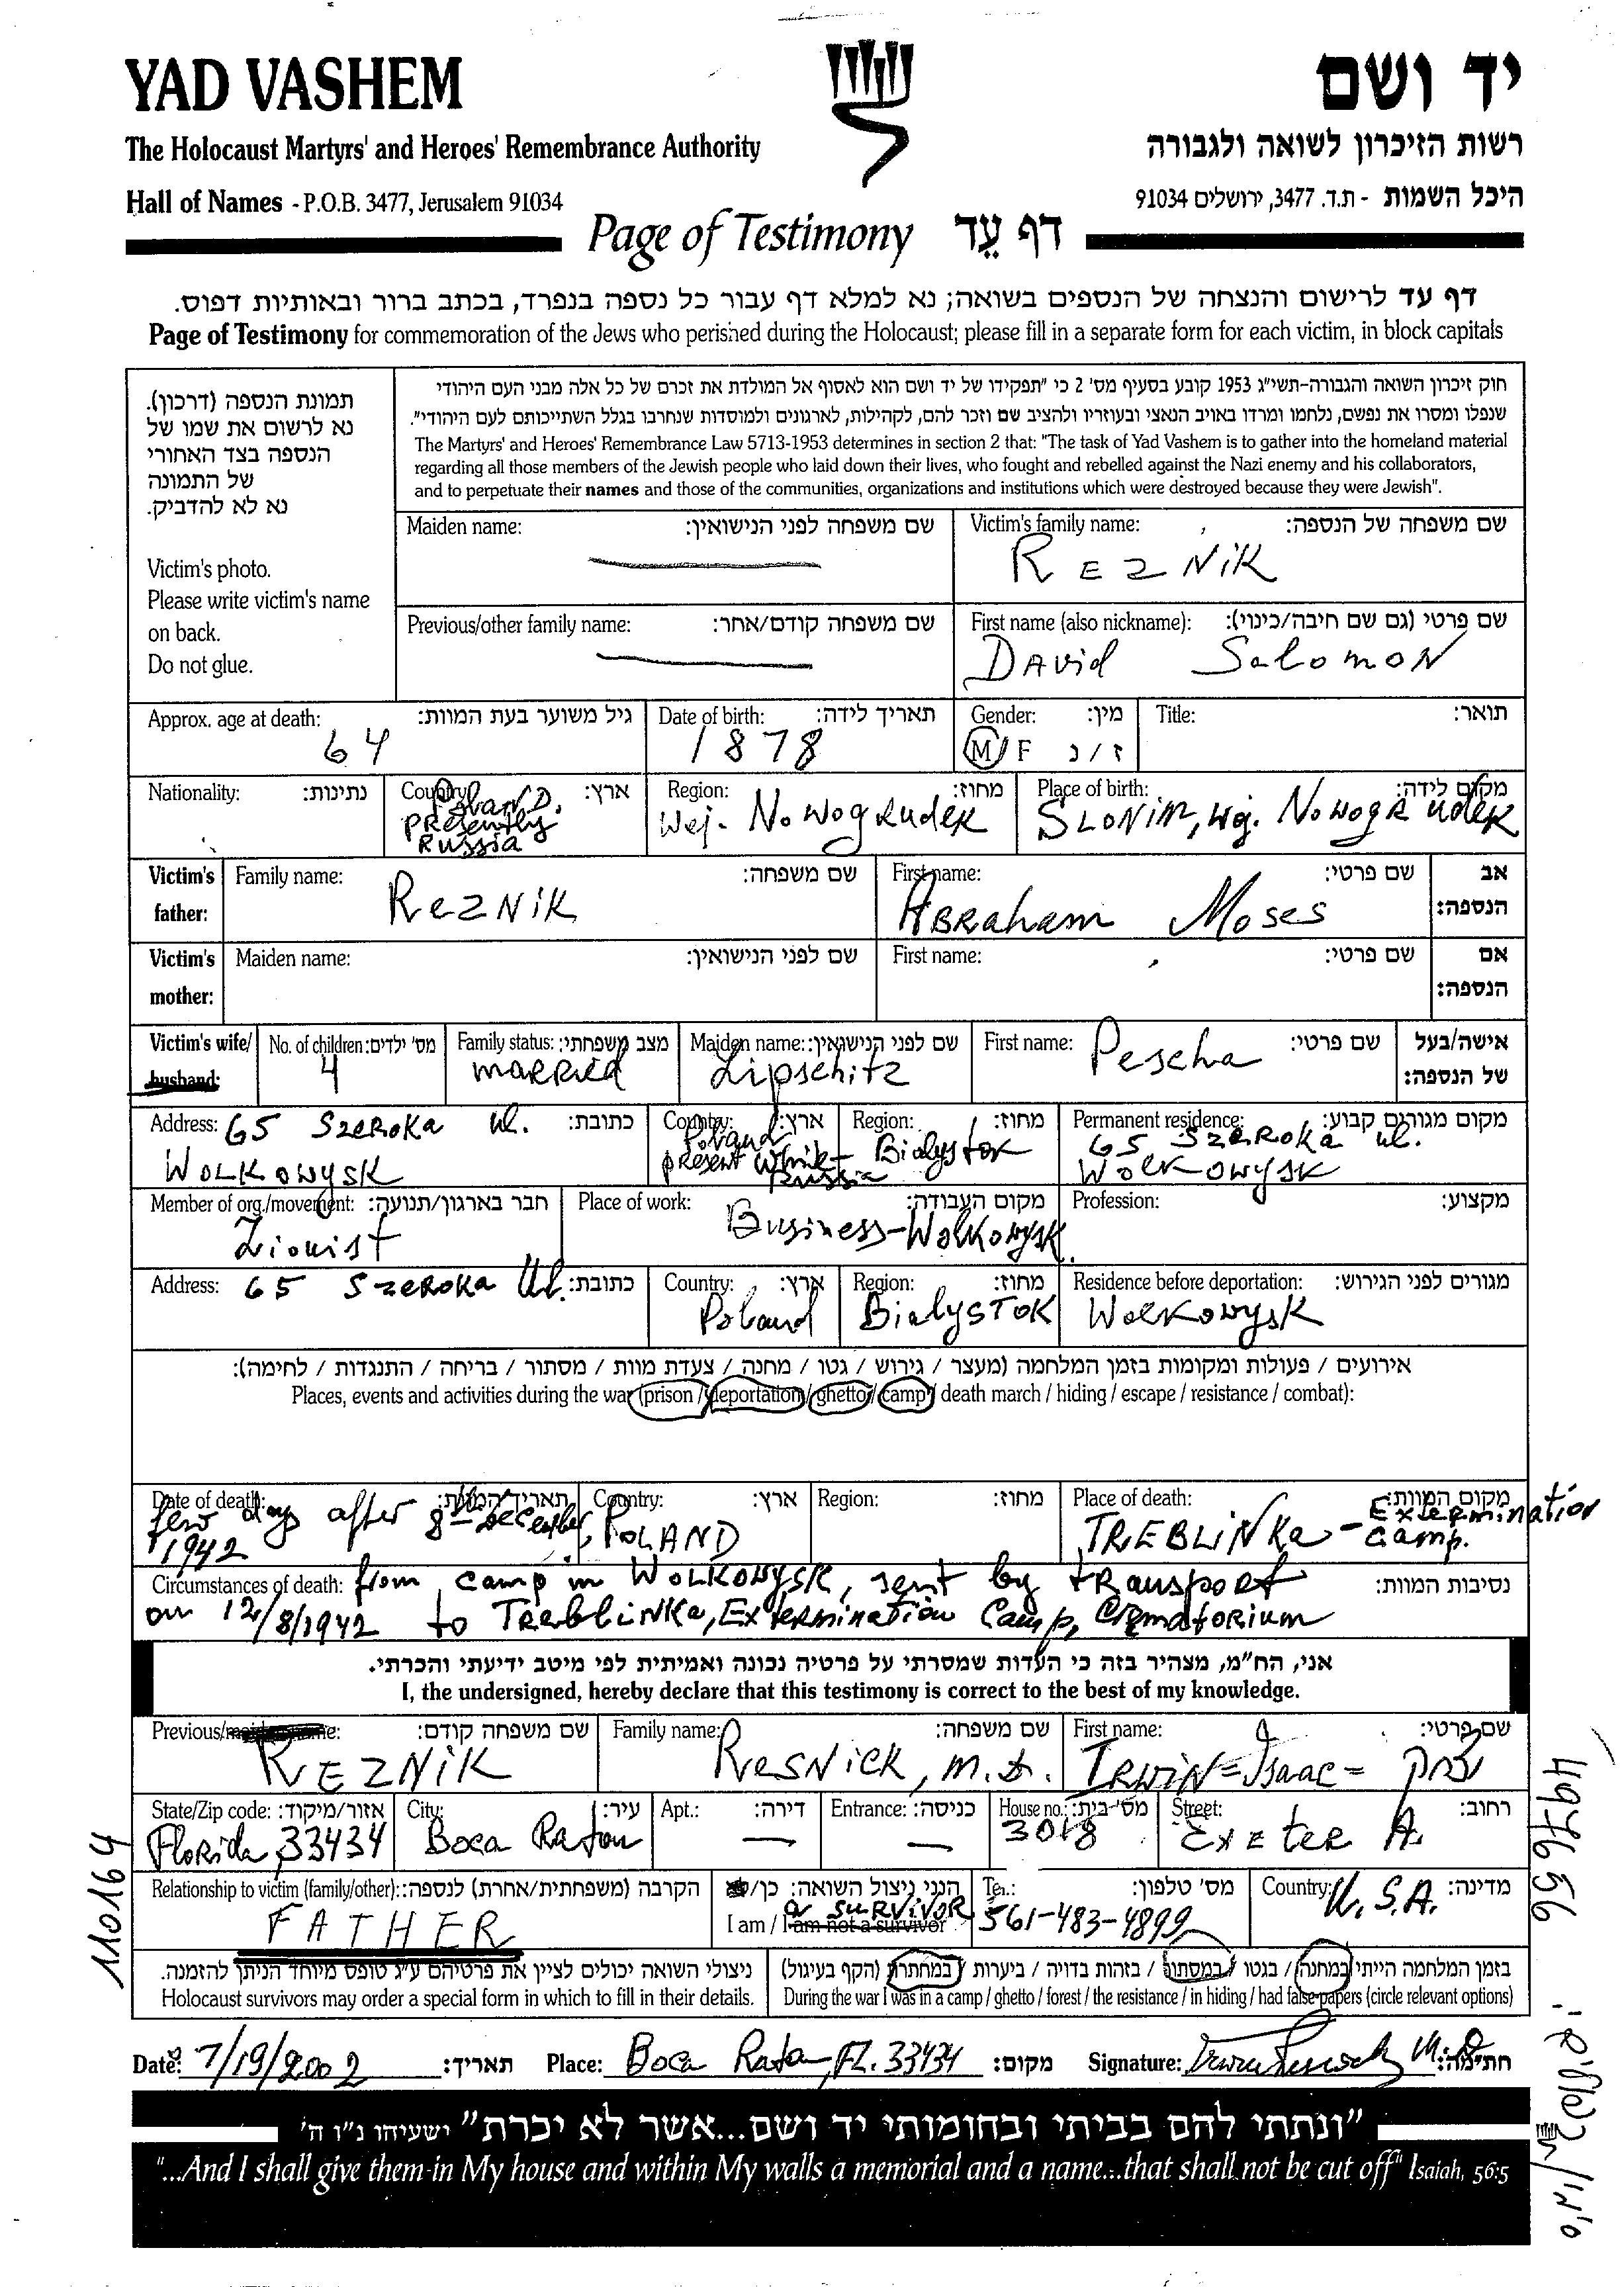 YAD VASHEM
יד ושם
The Holocaust Martyrs' and Heroes' Remembrance Authority
רשות הזיכרון לשואה ולגבורה
Hall of Names - P.O.B. 3477, Jerusalem 91034
היכל השמות - ת.ד. 3477, ירושלים 91034
Page of Testimony דף עֵד
דף עד לרישום והנצחה של הנספים בשואה; נא למלא דף עבור כל נספה בנפרד, בכתב ברור ובאותיות דפוס.
Page of Testimony for commemoration of the Jews who perished during the Holocaust; please fill in a separate form for each victim, in block capitals
תמונת הנספה (דרכון).
נא לרשום את שמו של
הנספה בצד האחורי
של התמונה
נא לא להדביק.
Victim's photo.
Please write victim's name
on back.
Do not glue.
חוק זיכרון השואה והגבורה-תשי"ג 1953 קובע בסעיף מס' 2 כי "תפקידו של יד ושם הוא לאסוף אל המולדת את זכרם של כל אלה מבני העם היהודי
שנפלו ומסרו את נפשם, נלחמו ומרדו באויב הנאצי ובעוזריו ולהציב שם וזכר להם, לקהילות, לארגונים ולמוסדות שנחרבו בגלל השתייכותם לעם היהודי".
The Martyrs' and Heroes' Remembrance Law 5713-1953 determines in section 2 that: "The task of Yad Vashem is to gather into the homeland material
regarding all those members of the Jewish people who laid down their lives, who fought and rebelled against the Nazi enemy and his collaborators,
and to perpetuate their names and those of the communities, organizations and institutions which were destroyed because they were Jewish".
Maiden name: שם משפחה לפני הנישואין:
Victim's family name: שם משפחה של הנספה:
REZNIK
Previous/other family name: שם משפחה קודם/אחר:
First name (also nickname): שם פרטי (גם שם חיבה/כינוי):
DAVID SALOMON
Approx. age at death: גיל משוער בעת המוות:
64
Date of birth: תאריך לידה:
1878
Gender: מין:
M/F ז/נ
Title: תואר:
Nationality: נתינות:
Country: ארץ:
POLAND.
PRESENTLY
RUSSIA
Region: מחוז:
Wej. NOWOGRUDEK
Place of birth: מקום לידה:
SLONIM, Wj. NOWOGRUDEK
Victim's father:
Family name: שם משפחה:
REZNIK
First name: שם פרטי:
ABRAHAM MOSES
אב הנספה:
Victim's mother:
Maiden name: שם לפני הנישואין:
First name: שם פרטי:
אם הנספה:
Victim's wife/husband:
No. of children: מס' ילדים:
4
Family status: מצב משפחתי:
MARRIED
Maiden name: שם לפני הנישואין:
Lipschitz
First name: שם פרטי:
Pescha
אישה/בעל של הנספה:
Address: כתובת:
65 SZEROKA Ul.
WOLKOWYSK
Country: ארץ:
Poland
present White-
Russia
Region: מחוז:
Bialystok
Permanent residence: מקום מגורים קבוע:
65 SZEROKA Ul.
WOLKOWYSK
Member of org./movement: חבר בארגון/תנועה:
Zionist
Place of work: מקום העבודה:
Business-Wolkowysk.
Profession: מקצוע:
Address: כתובת:
65 SZEROKA Ul.
Country: ארץ:
Poland
Region: מחוז:
BialySTOK
Residence before deportation: מגורים לפני הגירוש:
Wolkowysk
אירועים / פעולות ומקומות בזמן המלחמה (מעצר / גירוש / גטו / מחנה / צעדת מוות / מסתור / בריחה / התנגדות / לחימה):
Places, events and activities during the war (prison / deportation / ghetto / camp / death march / hiding / escape / resistance / combat):
Date of death: תאריך המוות:
few days after 8th December,
1942
Country: ארץ:
POLAND
Region: מחוז:
Place of death: מקום המוות:
TREBLINKA - Extermination
Camp.
Circumstances of death: נסיבות המוות:
from camp in WOLKOWYSK, sent by transport
on 12/8/1942 to TREBLINKA, Extermination Camp, Crematorium
אני, הח"מ, מצהיר בזה כי העדות שמסרתי על פרטיה נכונה ואמיתית לפי מיטב ידיעתי והכרתי.
I, the undersigned, hereby declare that this testimony is correct to the best of my knowledge.
Previous/maiden name: שם משפחה קודם:
REZNIK
Family name: שם משפחה:
RESNICK, M.D.
First name: שם פרטי:
IRWIN = Isaac = יצחק
State/Zip code: אזור/מיקוד:
Florida, 33434
City: עיר:
Boca Raton
Apt.: דירה:
Entrance: כניסה:
House no.: מס' בית:
3018
Street: רחוב:
Exeter A.
Relationship to victim (family/other): הקרבה (משפחתית/אחרת) לנספה:
FATHER
הנני ניצול השואה: כן/
a SURVIVOR
I am / I am not a survivor
Tel.: מס' טלפון:
561-483-4899
Country: מדינה:
U.S.A.
ניצולי השואה יכולים לציין את פרטיהם ע"ג טופס מיוחד הניתן להזמנה.
Holocaust survivors may order a special form in which to fill in their details.
בזמן המלחמה הייתי במחנה / בגטו / במסתור / בזהות בדויה / ביערות / במחתרת (הקף בעיגול)
During the war I was in a camp / ghetto / forest / the resistance / in hiding / had false papers (circle relevant options)
Date: 7/19/2002 תאריך:
Place: Boca Raton, FL. 33434 מקום:
Signature: חתימה:
"ונתתי להם בביתי ובחומותי יד ושם...אשר לא יכרת" ישעיהו נ"ו ה'
"...And I shall give them in My house and within My walls a memorial and a name...that shall not be cut off" Isaiah, 56:5
110164
497656